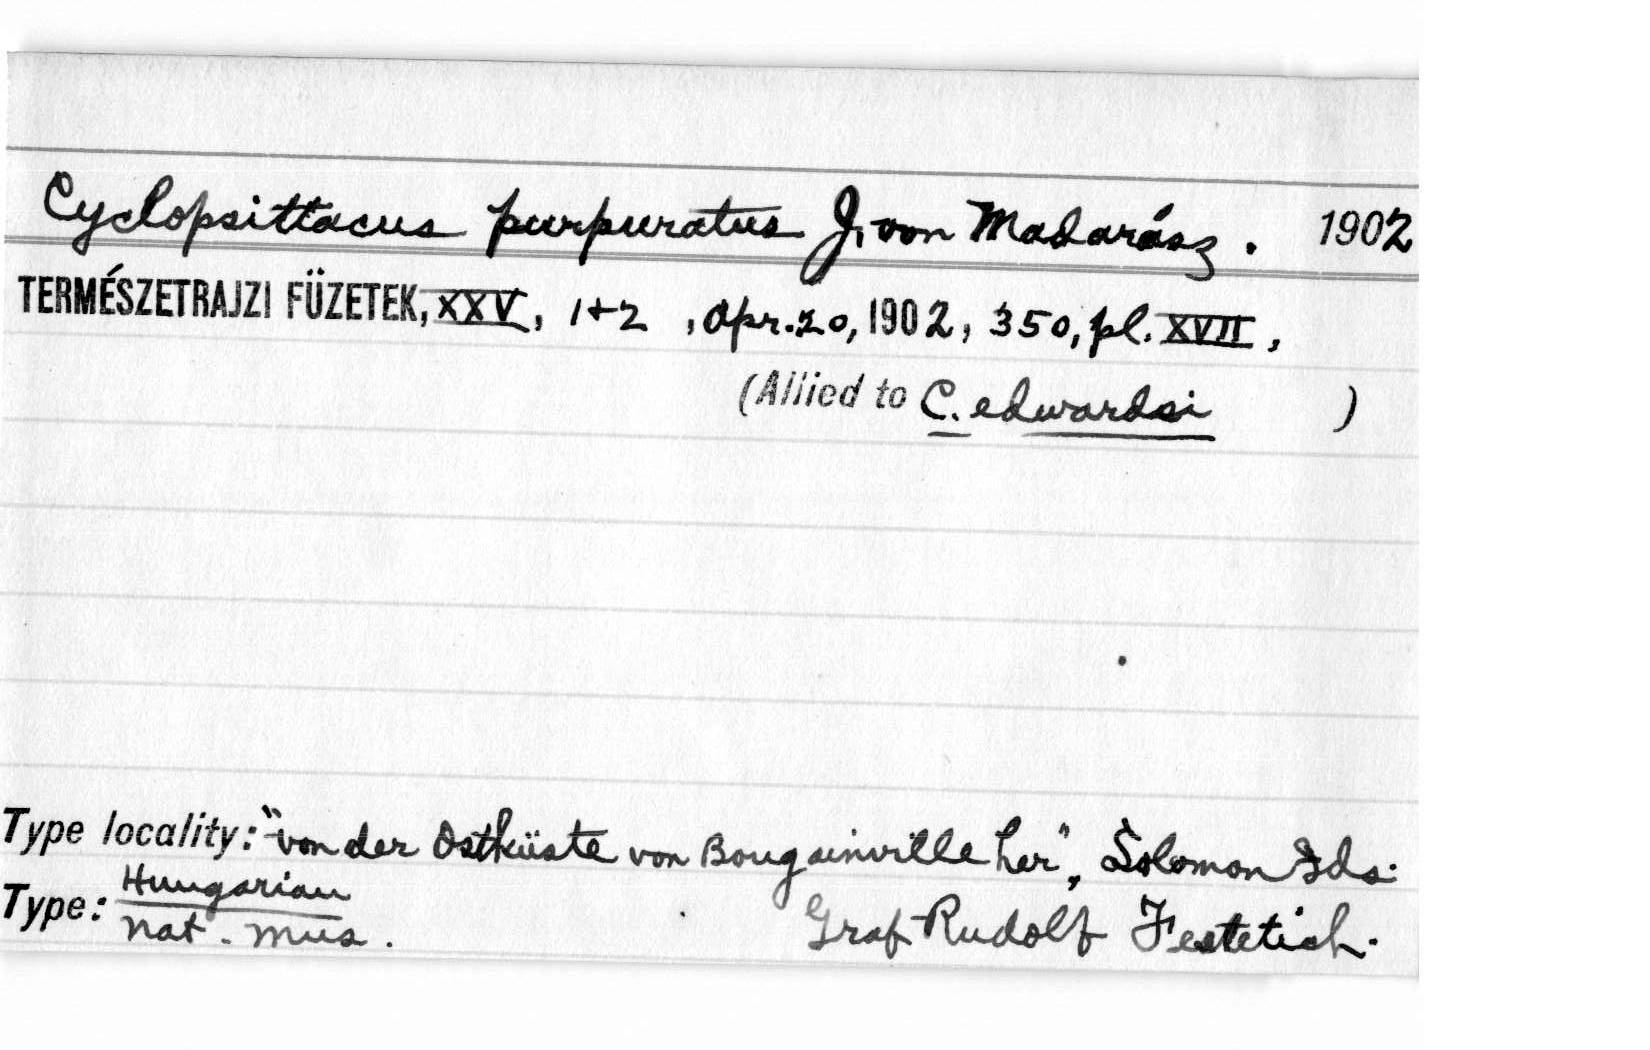 Cyclopsittacus purpuratus J. von Madarász. 1902
TERMÉSZETRAJZI FÜZETEK, XXV, 1+2, Apr. 20, 1902, 350, pl. XVII,
(Allied to C. edwardsi )
Type locality: "von der Ostküste von Bougainville her", Solomon Ids.
Type: Hungarian
Nat. Mus. Graf Rudolf Festetich.